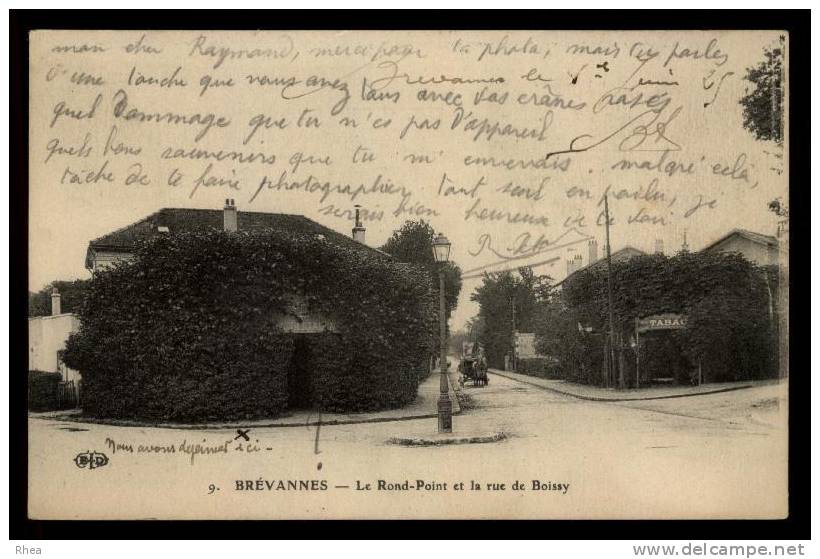 mon cher Raymond, merci pour ta photo, mais tu parles
d'une touche que vous avez Brevannes le Juin 25
tous avec vos crânes rasés
quel Dommage que tu n'es pas d'appareil
quels bons souvenirs que tu m'enverrais. malgré cela,
tâche de te faire photographier tout seul en poilu, je
serais bien heureux de te voir
TABAC
Nous avons dejeuner ici -
E.L.D
9. BRÉVANNES — Le Rond-Point et la rue de Boissy
Rhea
http://www.delcampe.net